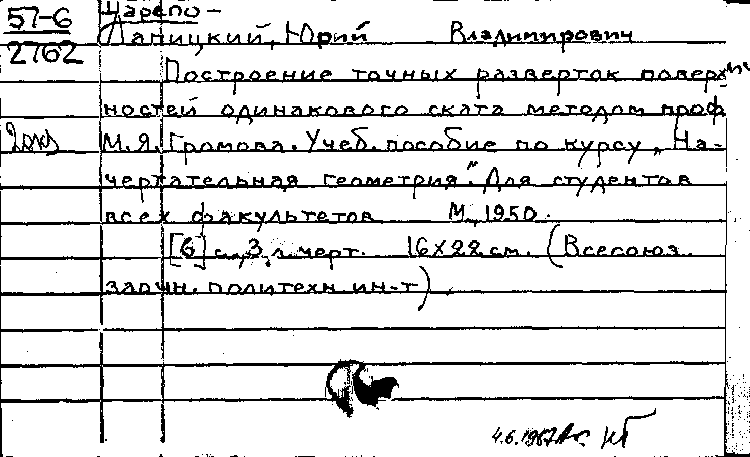 57-6
2762
Царепо-
Лапицкий, Юрий Владимирович
Построение точных разверток поверх-
ностей одинакового ската методом проф.
2экз М.Я. Громова. Учеб. пособие по курсу „На-
чертательная геометрия". Для студентов
всех факультетов М., 1950.
[6] с., 3 л. черт. 16х22 см. (Всесоюз.
заочн. политехн ин-т).
4.6.1967